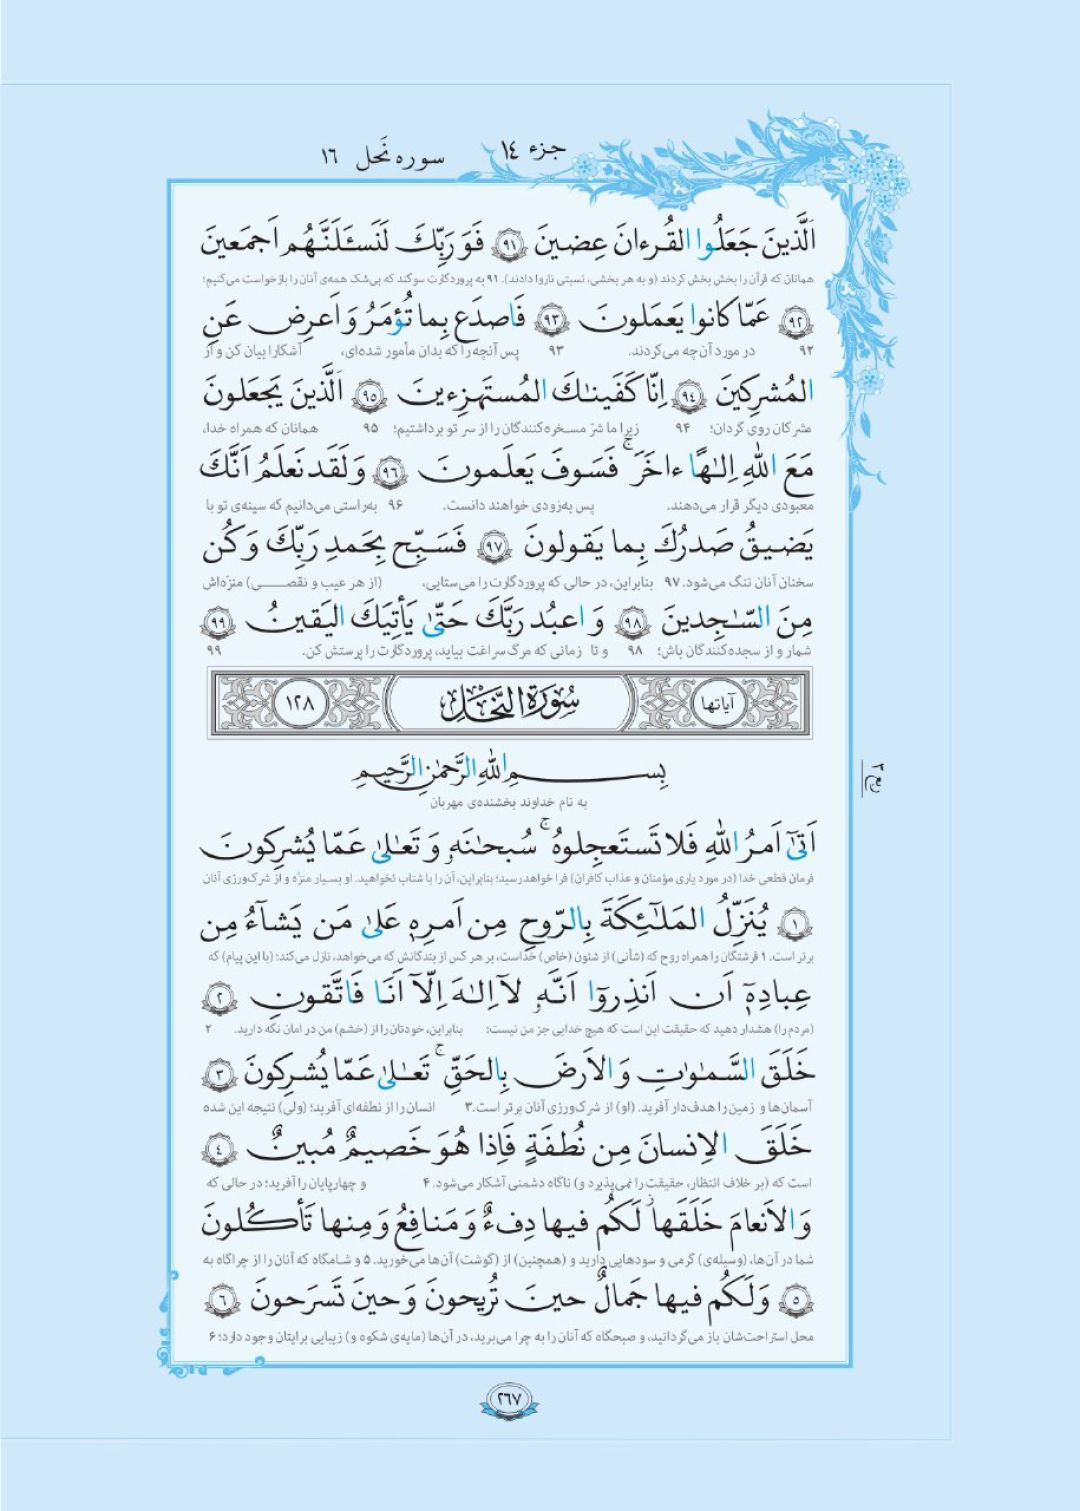 جزء ١٤
سوره نَحل ١٦
اَلَّذينَ جَعَلُوا القُرءانَ عِضينَ ٩١ فَوَرَبِّكَ لَنَسـَٔلَنَّهُم اَجمَعينَ
همانان که قرآن را بخش بخش کردند (و به هر بخشی، نسبتی ناروا دادند). ۹۱ به پروردگارت سوگند که بی‌شک همه‌ی آنان را بازخواست می‌کنیم؛
٩٢ عَمّا كانوا يَعمَلونَ ٩٣ فَاصدَع بِما تُؤمَرُ وَ اَعرِض عَنِ
۹۲ در مورد آن‌چه می‌کردند. ۹۳ پس آنچه را که بدان مأمور شده‌ای، آشکارا بیان کن و از
المُشرِكينَ ٩٤ اِنّا كَفَيناكَ المُستَهزِءينَ ٩٥ اَلَّذينَ يَجعَلونَ
مشرکان روی گردان؛ ۹۴ زیرا ما شرّ مسخره‌کنندگان را از سر تو برداشتیم؛ ۹۵ همانان که همراه خدا،
مَعَ اللهِ اِلـٰهًا ءاخَرَ ۚ فَسَوفَ يَعلَمونَ ٩٦ وَ لَقَد نَعلَمُ اَنَّكَ
معبودی دیگر قرار می‌دهند. پس به‌زودی خواهند دانست. ۹۶ به‌راستی می‌دانیم که سینه‌ی تو با
يَضيقُ صَدرُكَ بِما يَقولونَ ٩٧ فَسَبِّح بِحَمدِ رَبِّكَ وَ كُن
سخنان آنان تنگ می‌شود. ۹۷ بنابراین، در حالی که پروردگارت را می‌ستایی، (از هر عیب و نقصی) منزّه‌اش
مِنَ السّـٰجِدينَ ٩٨ وَ اعبُد رَبَّكَ حَتّىٰ يَأتِيَكَ اليَقينُ ٩٩
شمار و از سجده‌کنندگان باش؛ ۹۸ و تا زمانی که مرگ سراغت بیاید، پروردگارت را پرستش کن. ۹۹
آیاتها سُورَةُ النَّحل ١٢٨
ربع ٢
بِسمِ اللهِ الرَّحمٰنِ الرَّحيمِ
به نام خداوند بخشنده‌ی مهربان
اَتىٰٓ اَمرُ اللهِ فَلا تَستَعجِلوهُ ۚ سُبحـٰنَهٗ وَ تَعـٰلىٰ عَمّا يُشرِكونَ
فرمان قطعی خدا (در مورد یاری مؤمنان و عذاب کافران) فرا خواهد رسید؛ بنابراین، آن را با شتاب نخواهید. او بسیار منزّه و از شرک‌ورزی آنان
١ يُنَزِّلُ المَلـٰٓئِكَةَ بِالرّوحِ مِن اَمرِهٖ عَلىٰ مَن يَشآءُ مِن
برتر است. ۱ فرشتگان را همراه روح که (شأنی) از شئون (خاص) خداست، بر هر کس از بندگانش که می‌خواهد، نازل می‌کند؛ (با این پیام) که
عِبادِهٖٓ اَن اَنذِروٓا اَنَّهٗ لآ اِلـٰهَ اِلّآ اَنَا فَاتَّقونِ ٢
(مردم را) هشدار دهید که حقیقت این است که هیچ خدایی جز من نیست؛ بنابراین، خودتان را از (خشم) من در امان نگه دارید. ۲
خَلَقَ السَّمـٰوٰتِ وَ الاَرضَ بِالحَقِّ ۚ تَعـٰلىٰ عَمّا يُشرِكونَ ٣
آسمان‌ها و زمین را هدف‌دار آفرید. (او) از شرک‌ورزی آنان برتر است. ۳ انسان را از نطفه‌ای آفرید؛ (ولی) نتیجه این شده
خَلَقَ الاِنسانَ مِن نُطفَةٍ فَاِذا هُوَ خَصيمٌ مُبينٌ ٤
است که (بر خلاف انتظار، حقیقت را نمی‌پذیرد و) ناگاه دشمنی آشکار می‌شود. ۴ و چهارپایان را آفرید؛ در حالی که
وَ الاَنعامَ خَلَقَها ۖ لَكُم فيها دِفءٌ وَ مَنافِعُ وَ مِنها تَأكُلونَ
شما در آن‌ها، (وسیله‌ی) گرمی و سودهایی دارید و (همچنین) از (گوشت) آن‌ها می‌خورید. ۵ و شامگاه که آنان را از چراگاه به
٥ وَ لَكُم فيها جَمالٌ حينَ تُريحونَ وَ حينَ تَسرَحونَ ٦
محل استراحت‌شان باز می‌گردانید، و صبحگاه که آنان را به چرا می‌برید، در آن‌ها (مایه‌ی شکوه و) زیبایی برایتان وجود دارد؛ ۶
٢٦٧